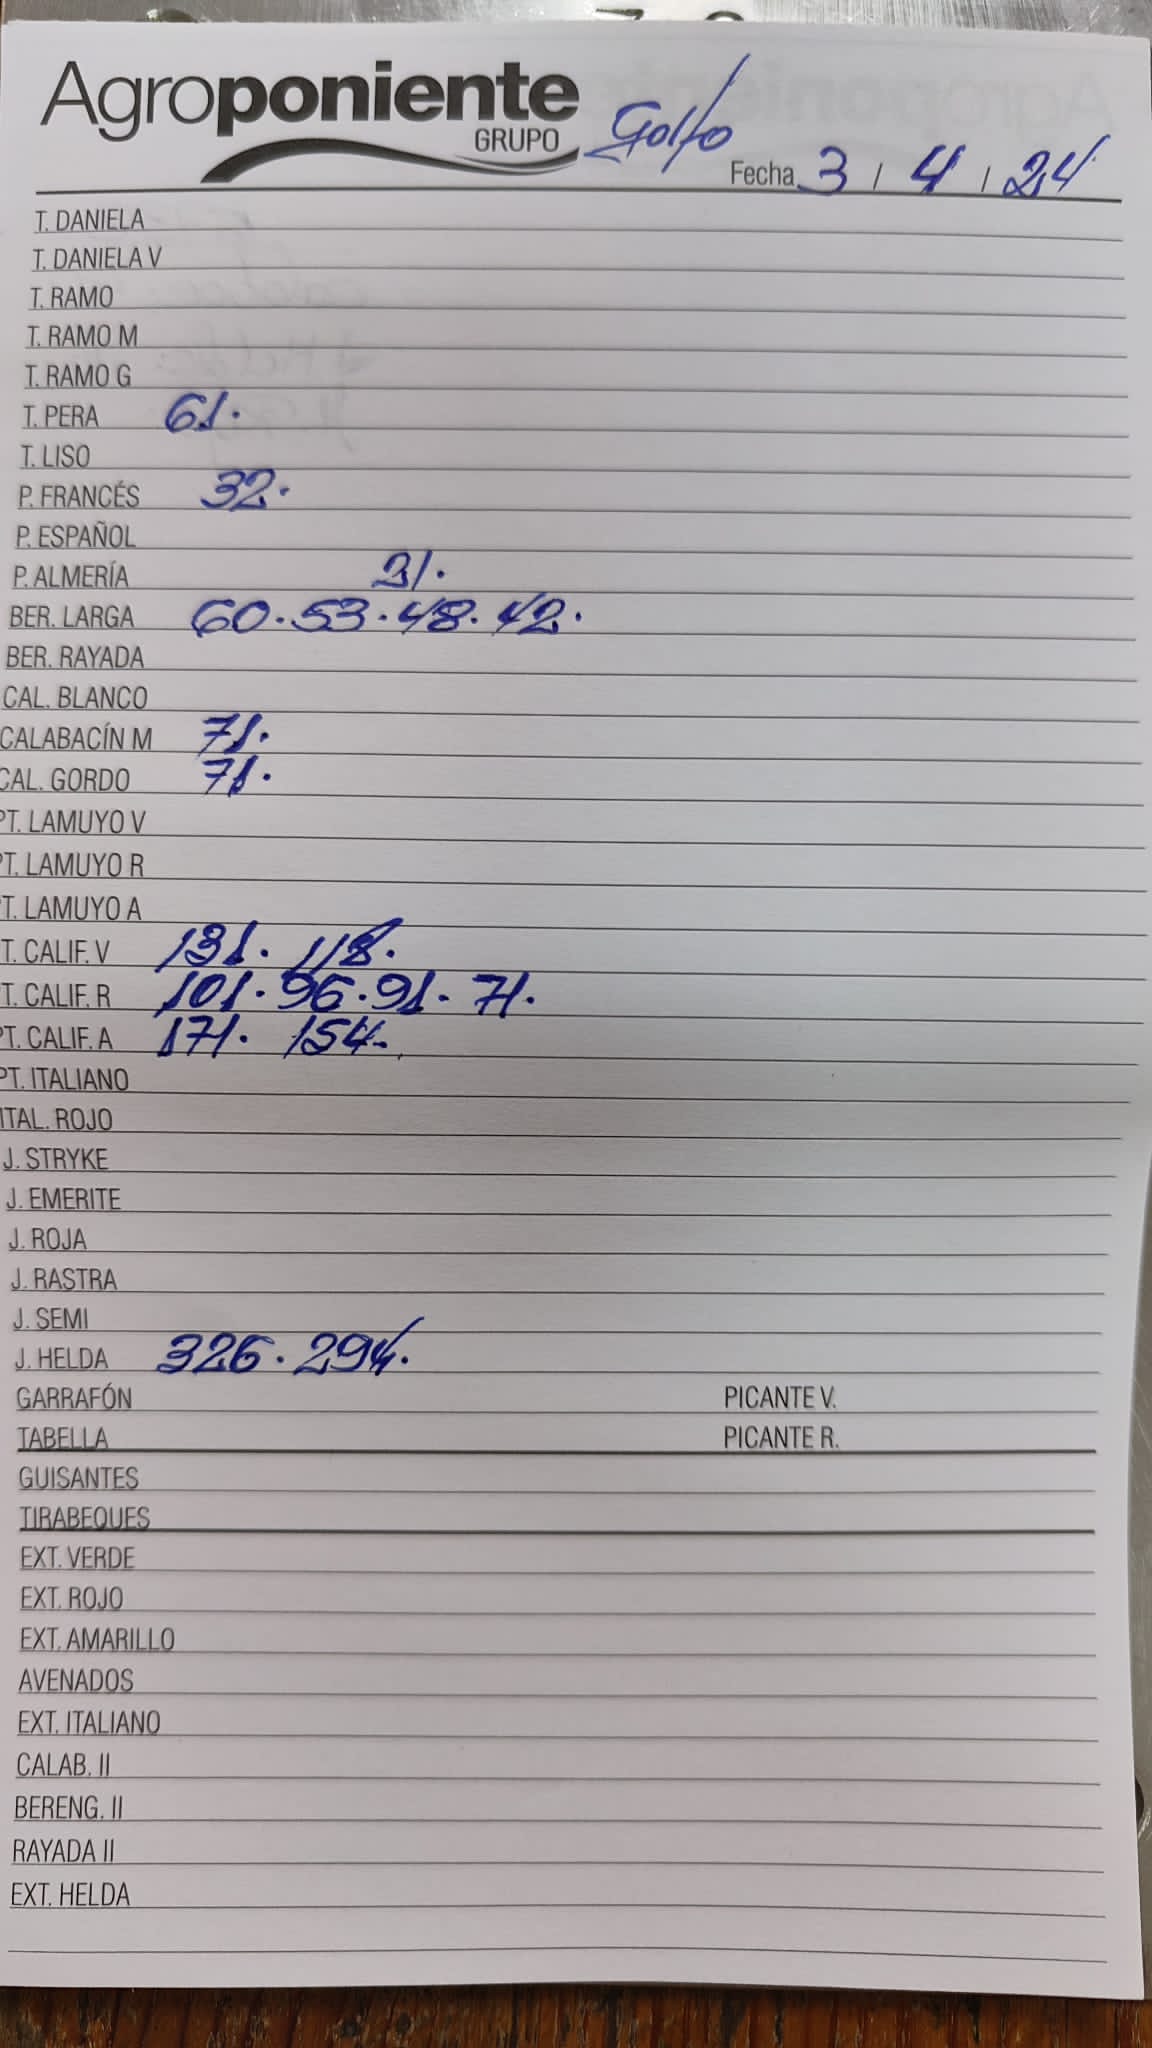 Agroponiente
GRUPO
Golfo
Fecha 3 / 4 / 24
T. DANIELA
T. DANIELA V
T. RAMO
T. RAMO M
T. RAMO G
T. PERA 61.
T. LISO
P. FRANCÉS 32.
P. ESPAÑOL
P. ALMERÍA 31.
BER. LARGA 60. 53. 48. 42.
BER. RAYADA
CAL. BLANCO
CALABACÍN M 71.
CAL. GORDO 71.
PT. LAMUYO V
PT. LAMUYO R
T. LAMUYO A
T. CALIF. V 131. 118.
T. CALIF. R 101. 96. 91. 71.
PT. CALIF. A 171. 154.
PT. ITALIANO
ITAL. ROJO
J. STRYKE
J. EMERITE
J. ROJA
J. RASTRA
J. SEMI
J. HELDA 326. 294.
GARRAFÓN PICANTE V.
TABELLA PICANTE R.
GUISANTES
TIRABEQUES
EXT. VERDE
EXT. ROJO
EXT. AMARILLO
AVENADOS
EXT. ITALIANO
CALAB. II
BERENG. II
RAYADA II
EXT. HELDA